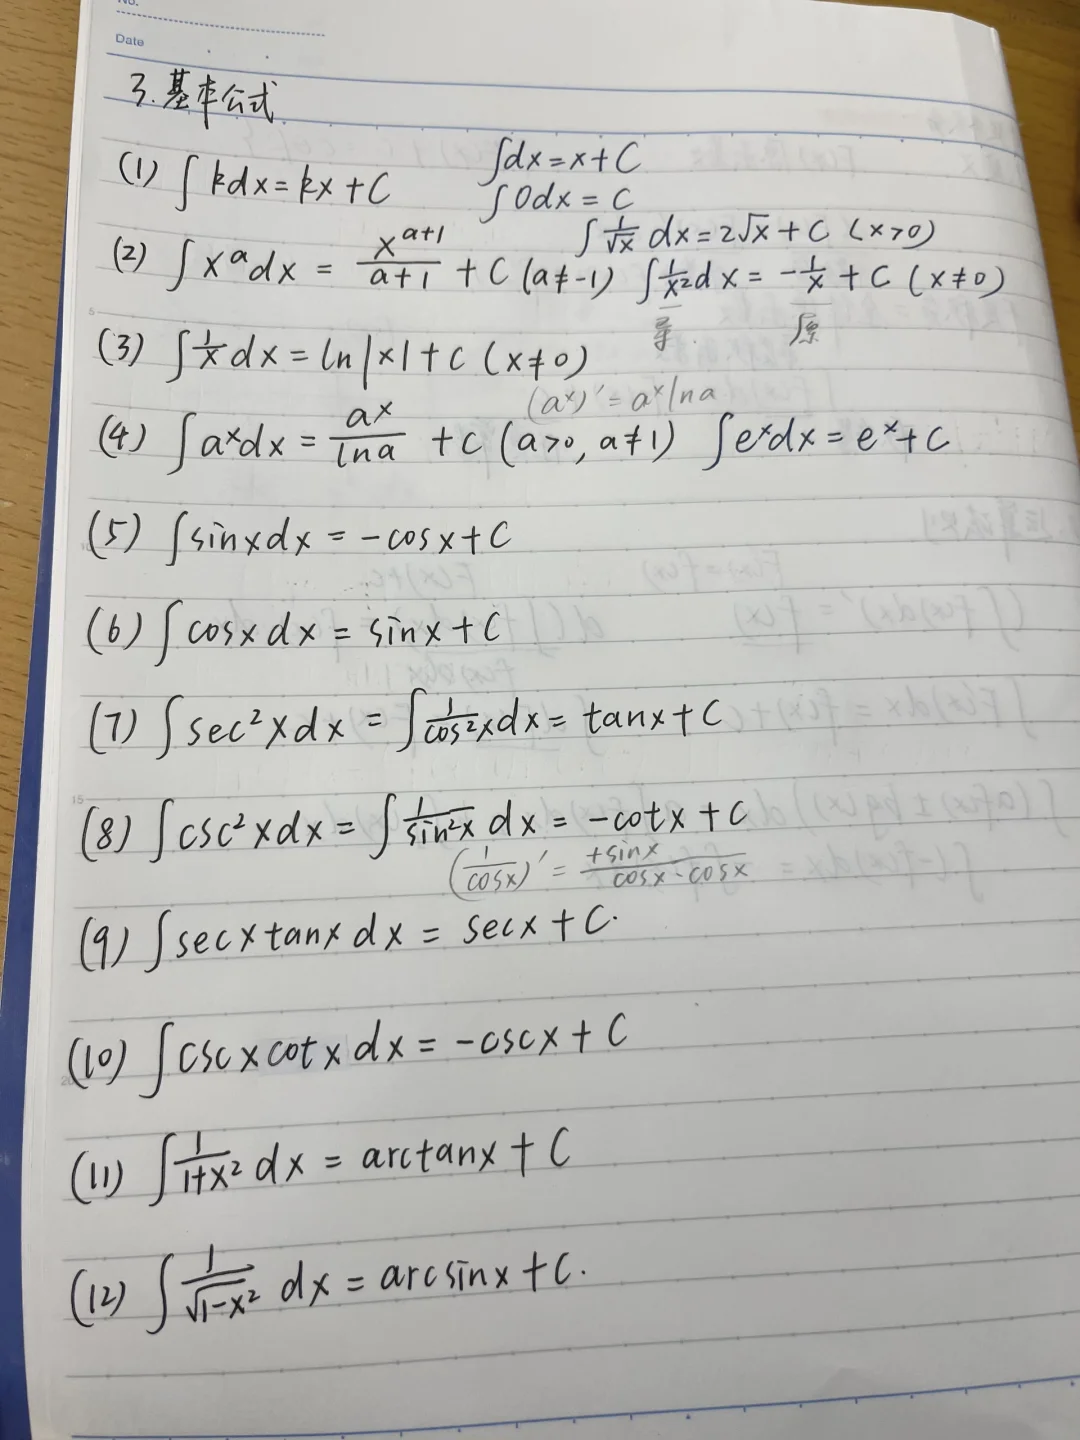 No.
Date
3.基本公式
(1) ∫kdx=kx+C ∫dx=x+C
∫0dx=C
(2) ∫x^a dx = x^(a+1)/(a+1) + C (a≠-1) ∫1/√x dx=2√x+C (x>0)
∫1/x² dx = -1/x + C (x≠0)
导 原
(3) ∫1/x dx = ln|x|+C (x≠0)
(a^x)' = a^x lna
(4) ∫a^x dx = a^x/lna + C (a>0, a≠1) ∫e^x dx = e^x+C
(5) ∫sinxdx = -cosx+C
(6) ∫cosxdx = sinx+C
(7) ∫sec²xdx = ∫1/cos²x dx= tanx+C
(8) ∫csc²xdx = ∫1/sin²x dx = -cotx+C
(1/cosx)' = +sinx/cosx·cosx
(9) ∫secxtanxdx = secx+C.
(10) ∫cscxcotxdx = -cscx+C
(11) ∫1/1+x² dx = arctanx+C
(12) ∫1/√1-x² dx = arcsinx+C.